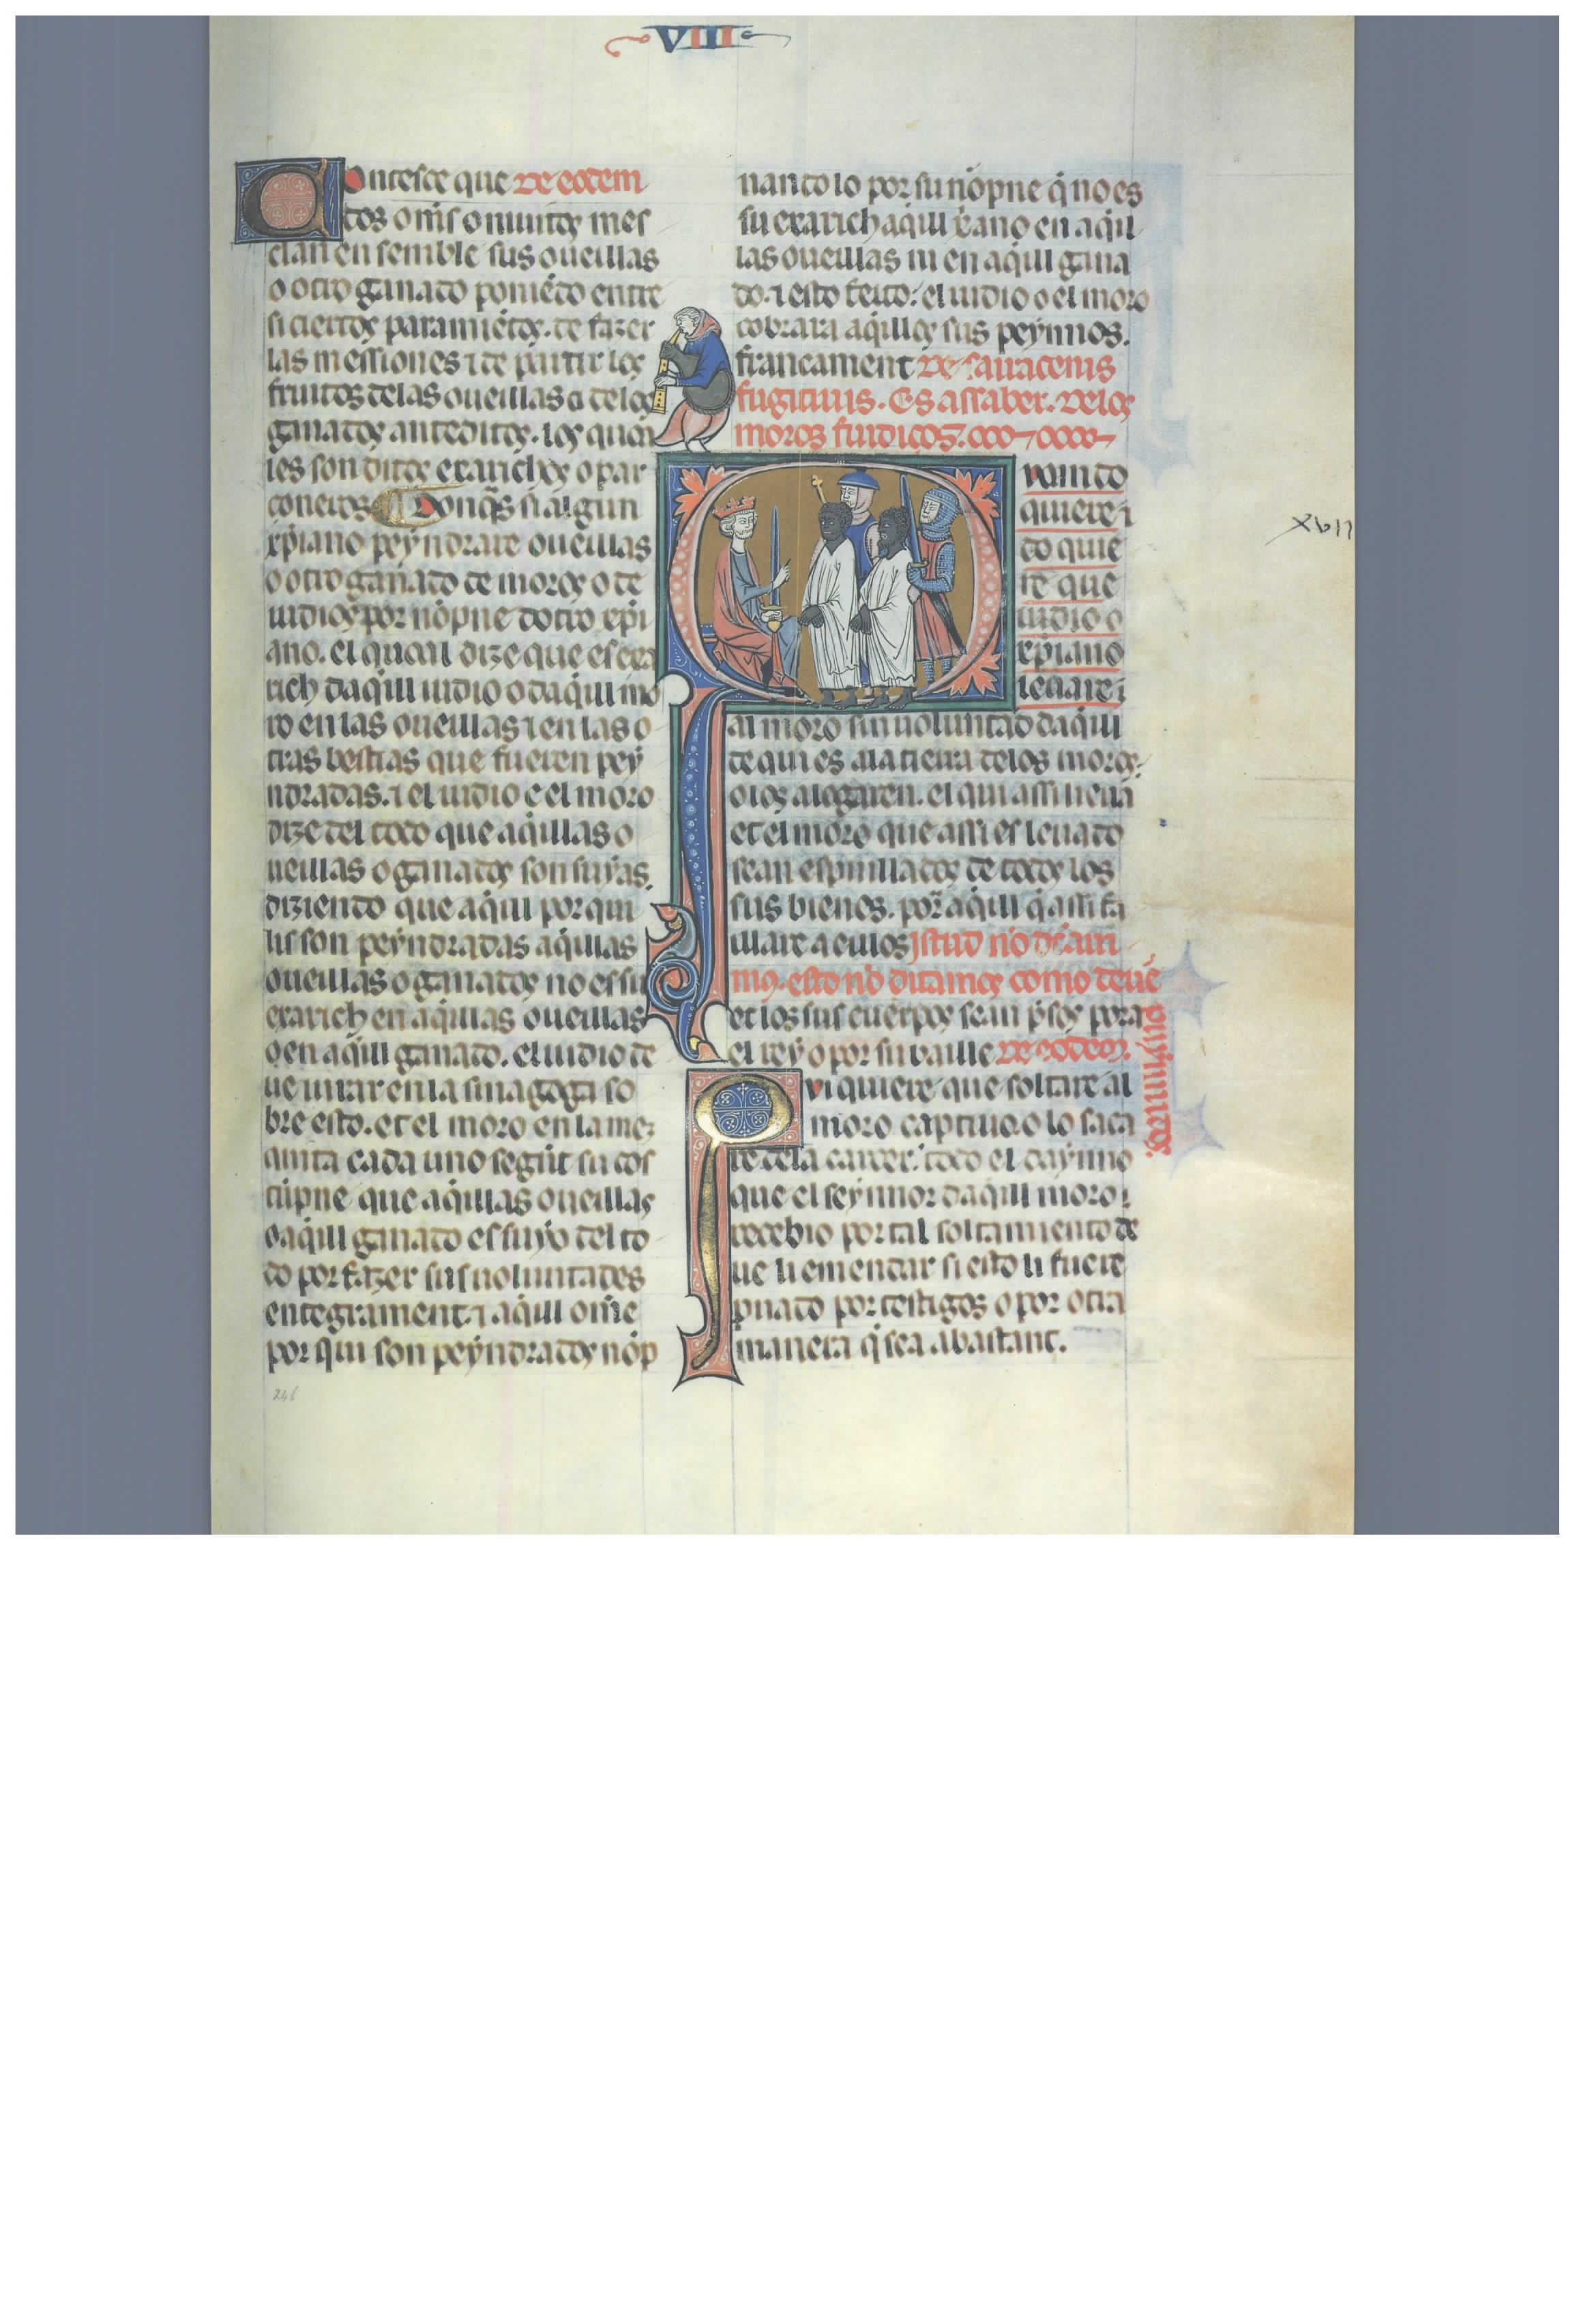 VIII
Contesce que De eodem
dos om̄s o muitos mes
clan en semble sus oueillas
o otro ganado poniēdo entre
si ciertos paramiētos. de fazer
las messiones ⁊ de partir los
fruitos de las oueillas o de los
ganados anteditos. los qua
les son ditos exariches o par
coneros ¶ Donq̄s si algun
xp̄iano peyndrare oueillas
o otro ganado de moros o de
iudios por nōpne dotro xp̄i
ano. el quoal dize que es exa
rich daq̄ll iudio o daq̄ll mo
ro en las oueillas ⁊ en las o
tras bestias que fueren pey
ndradas. ⁊ el iudio e el moro
dize del todo que aq̄llas o
ueillas o ganados son suyas.
diziendo que aq̄ll por qui
lis son peyndradas aq̄llas
oueillas o ganados no es su
exarich en aq̄llas oueillas
o en aq̄ll ganado. el iudio de
ue iurar en la sinagoga so
bre esto. et el moro en la mez
quita cada uno segūt su cos
tūpne que aq̄llas oueillas
o aq̄ll ganado es suyo del to
do por fazer sus uoluntades
entegrament. ⁊ aq̄ll om̄e
por qui son peyndrados nōp
246
nando lo por su nōpne q̄ no es
su exarich aq̄ll xāno en aq̄l
las oueillas ni en aq̄ll gana
do. ⁊ esto feito: el iudio o el moro
cobrara aq̄llos sus peynnos.
francament De sarracenis
fugitiuis. Es assaber. De los
moros fuidiços.
Quando
quiere i
do quie
re que
iudio o
xp̄iano
leuare i
al moro sin uoluntad daq̄ll
de qui es a la tierra de los moros.
o los alogaren. el qui assi lieua
et el moro que assi es leuado
sean espuillados de todos los
sus bienes. por aq̄ll q̄ assi fa
illare a eillos Istud nō dicim
us. esto nō ditamos como deuē
guymientos.
et los sus cuerpos sean p̄sos pora
el rey o por su baille De eodem.
Qui quiere que soltare al
moro captiuo. o lo saca
re de la carcer. todo el daynno
que el seynnor daq̄ll moro
recebio por tal soltamiento de
ue li emendar si esto li fuere
puado por testigos o por otra
manera q̄ sea abastant.
XVII